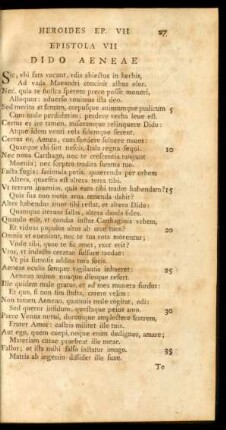 HEROIDES EP. VII 27
EPISTOLA VII
DIDO AENEAE
Sic, ubi fata vocant, udis abiectus in herbis,
Ad vada Maeandri concinit albus olor.
Nec, quia te nostra sperem prece posse moveri,
Alloquor: adverso movimus ista deo.
Sed merita et famam, corpusque animumque pudicum 5
Cum male perdiderim; perdere verba leve est.
Certus es ire tamen, miseramque relinquere Dido:
Atque iidem venti vela fidemque ferent.
Certus es, Aenea, cum foedere solvere naves:
Quaeque ubi sint nescis, Itala regna sequi. 10
Nec nova Carthago, nec te crescentia tangunt
Moenia; nec sceptro tradita summa tuo.
Facta fugis; facienda petis. quaerenda per orbem
Altera, quaesita est altera terra tibi.
Ut terram invenias, quis eam tibi tradet habendam? 15
Quis sua non notis arva tenenda dabit?
Alter habendus amor tibi restat, et altera Dido:
Quamque iterum fallas, altera danda fides.
Quando erit, ut condas instar Carthaginis urbem,
Et videas populos altus ab arce tuos? 20
Omnia ut eveniant, nec te tua vota morentur;
Unde tibi, quae te sic amet, uxor erit?
Uror, ut inducto ceratae sulfure taedae:
Ut pia fumosis addita tura
Aeneas oculis semper vigilantis inhaeret: 25
Aenean animo noxque diesque refert.
Ille quidem male gratus, et ad mea munera surdus:
Et quo, si non sim stulta, carere velim:
Non tamen Aenean, quamvis male cogitat, odi:
Sed queror infidum, questaque peius amo. 30
Parce Venus nurui, durumque amplectere fratrem,
Frater Amor: castris militet ille tuis.
Aut ego, quem coepi, neque enim dedignor, amare;
Materiam curae praebeat ille meae.
Fallor; et ista mihi falso iactatur imago. 35
Matris ab ingenio dissidet ille suae.
Te